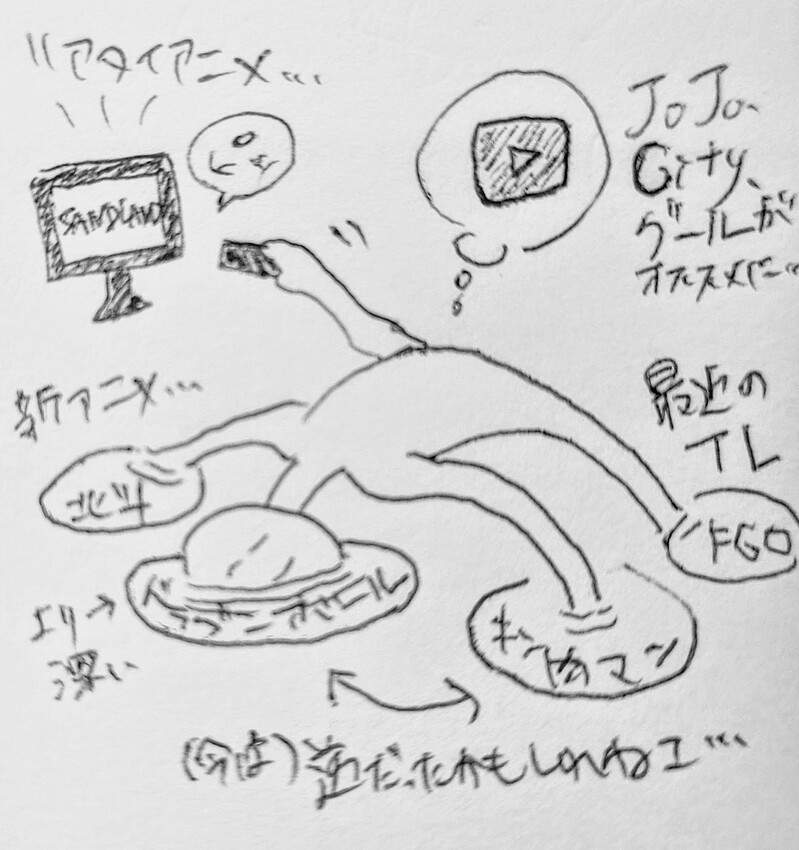 アタイアニメ…
SANDLAND
JoJo、
グールが
オススメに…
新アニメ…
最近の
イレ
北斗
FGO
ドラゴンボール
より→
深い
キン肉マン
(今は)逆だったかもしれねェ…